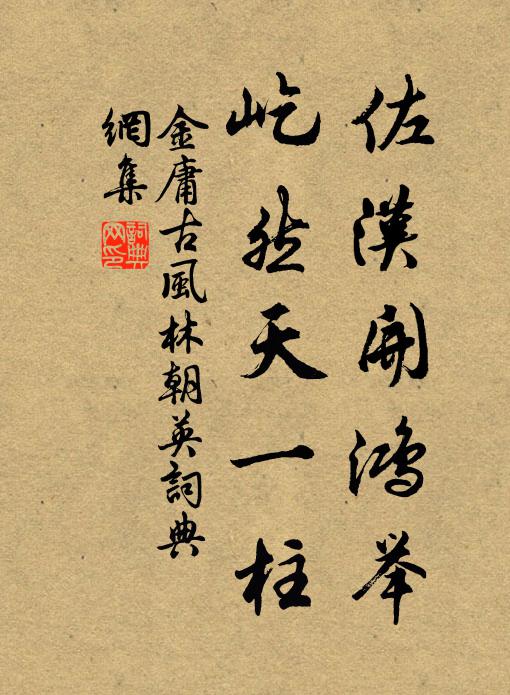 佐漢開鴻举
屹然天一柱
金庸古風林朝英詞典
網集
詞典
网印